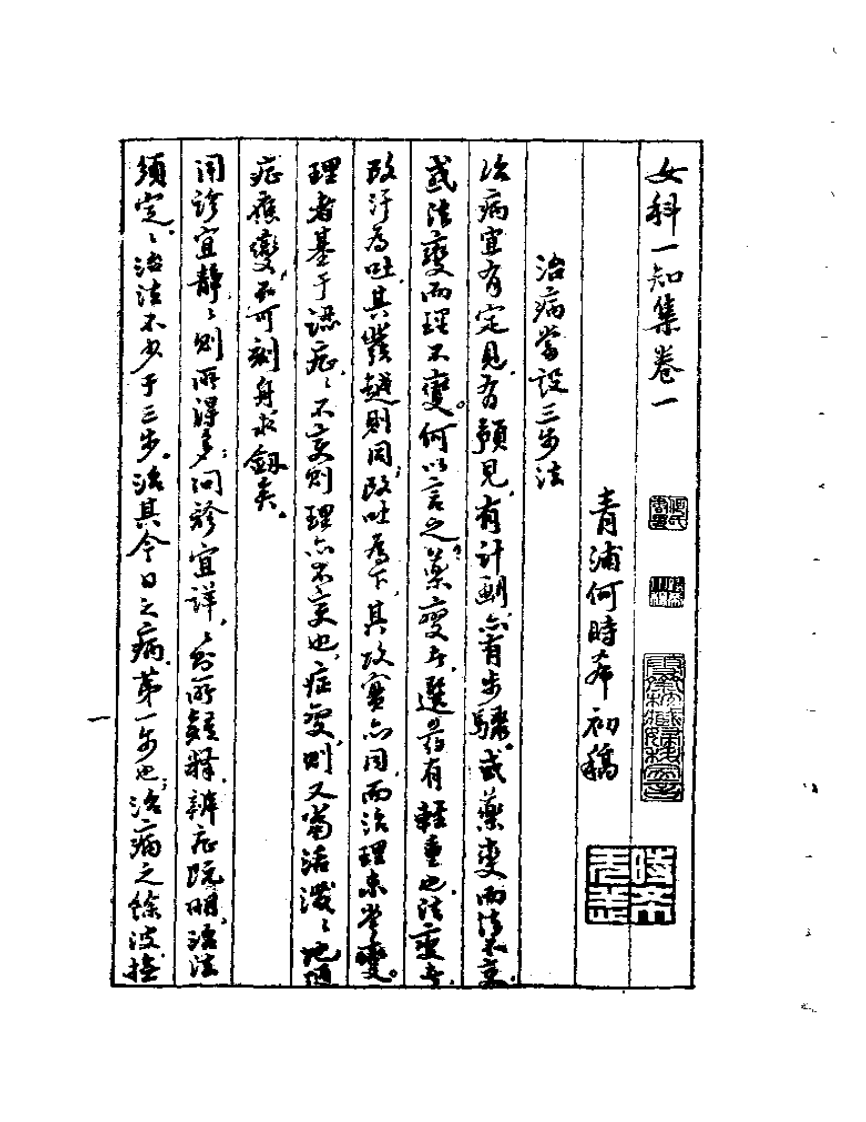 女科一知集卷一
青浦何時希初稿
治病當設三步法
治病宜有定見,有預見,有计劃,亦有步驟。或藥變而法不変,
或法變而理不變。何以言之?藥變者,選药有輕重也,法變者,
改汗為吐,其發越則同,改吐為下,其攻實亦同,而治理未嘗變。
理者基于認症,症不変則理亦不変也,症变,則又當活潑潑地随
症應變,不可刻舟求劍矣。
闻診宜静,静則所得多;问診宜详,详則所疑释,辨症既明,治法
須定,定治法不少于三步。治其今日之病,第一步也;治病之餘波,
一
時希